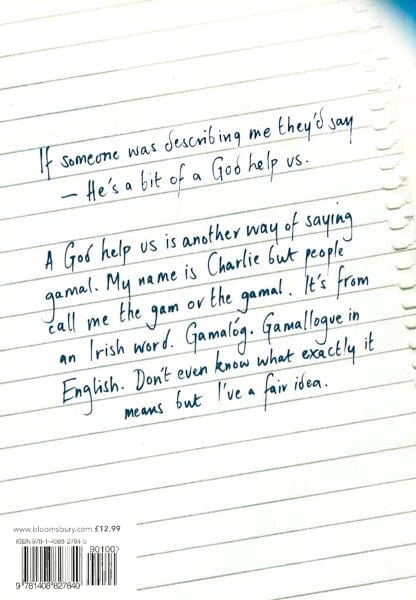 If someone was describing me they'd say
– He's a bit of a God help us.
A God help us is another way of saying
gamal. My name is Charlie but people
call me the gam or the gamal. It's from
an Irish word. Gamalóg. Gamallogue in
English. Don't even know what exactly it
means but I've a fair idea.
www.bloomsbury.com £12.99
ISBN 978-1-4088-2784-0
90100
9 781408 827840